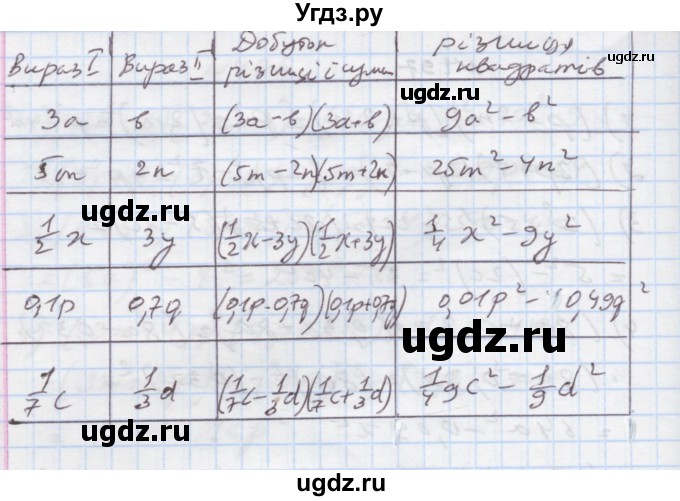 Угдз.ру
Вираз I Вираз II Добуток різниці і суми Різниця квадратів
3a b (3a - b)(3a + b) 9a² - b²
5m 2n (5m - 2n)(5m + 2n) 25m² - 4n²
1/2 x 3y (1/2 x - 3y)(1/2 x + 3y) 1/4 x² - 9y²
0,1p 0,7q (0,1p - 0,7q)(0,1p + 0,7q) 0,01p² - 0,49q²
1/7 c 1/3 d (1/7 c - 1/3 d)(1/7 c + 1/3 d) 1/49 c² - 1/9 d²
ugdz.ru
ugdz.ru
ugdz.ru
ugdz.ru
ugdz.ru
ugdz.ru
Угдз.ру